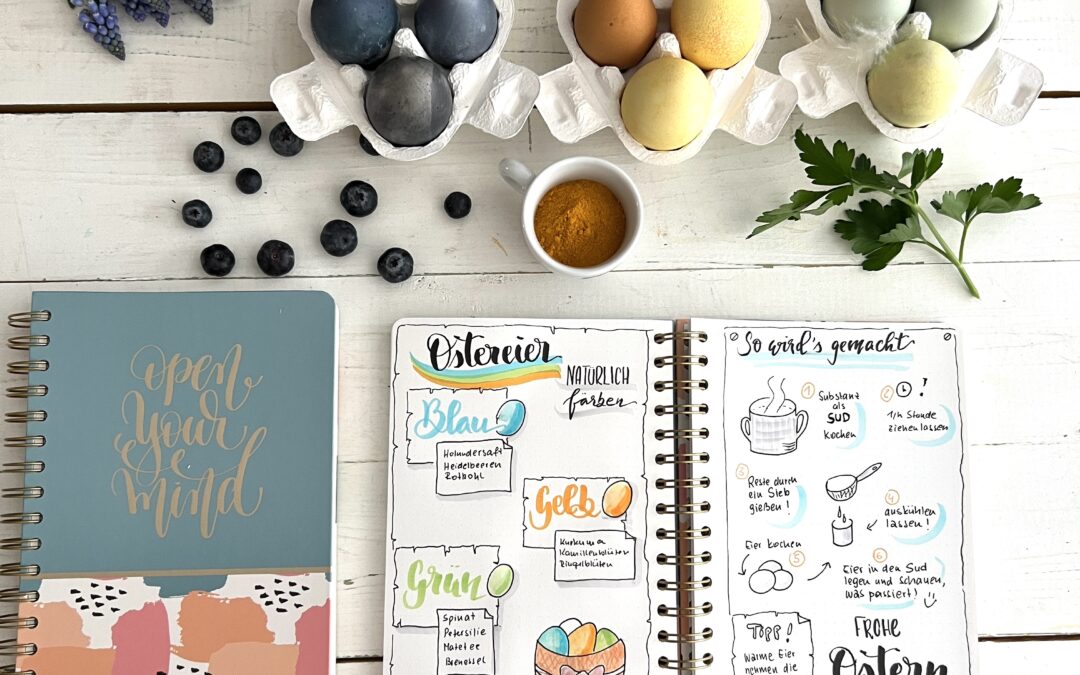 open
your
mind
Ostereier
NATÜRLICH
färben
Blau
Holundersaft
Heidelbeeren
Rotkohl
Gelb
Kurkuma
Kamillenblüten
Ringelblüten
Grün
Spinat
Petersilie
Matetee
Brenessel
So wird's gemacht
1
Substanz
als
SUD
kochen
2
!
1/2 Stunde
ziehen lassen
3
Reste durch
ein Sieb
gießen!
4
auskühlen
lassen!
Eier kochen
5
6
Eier in den Sud
legen und schauen,
was passiert!
Topp!
Warme Eier
nehmen die
FROHE
Ostern